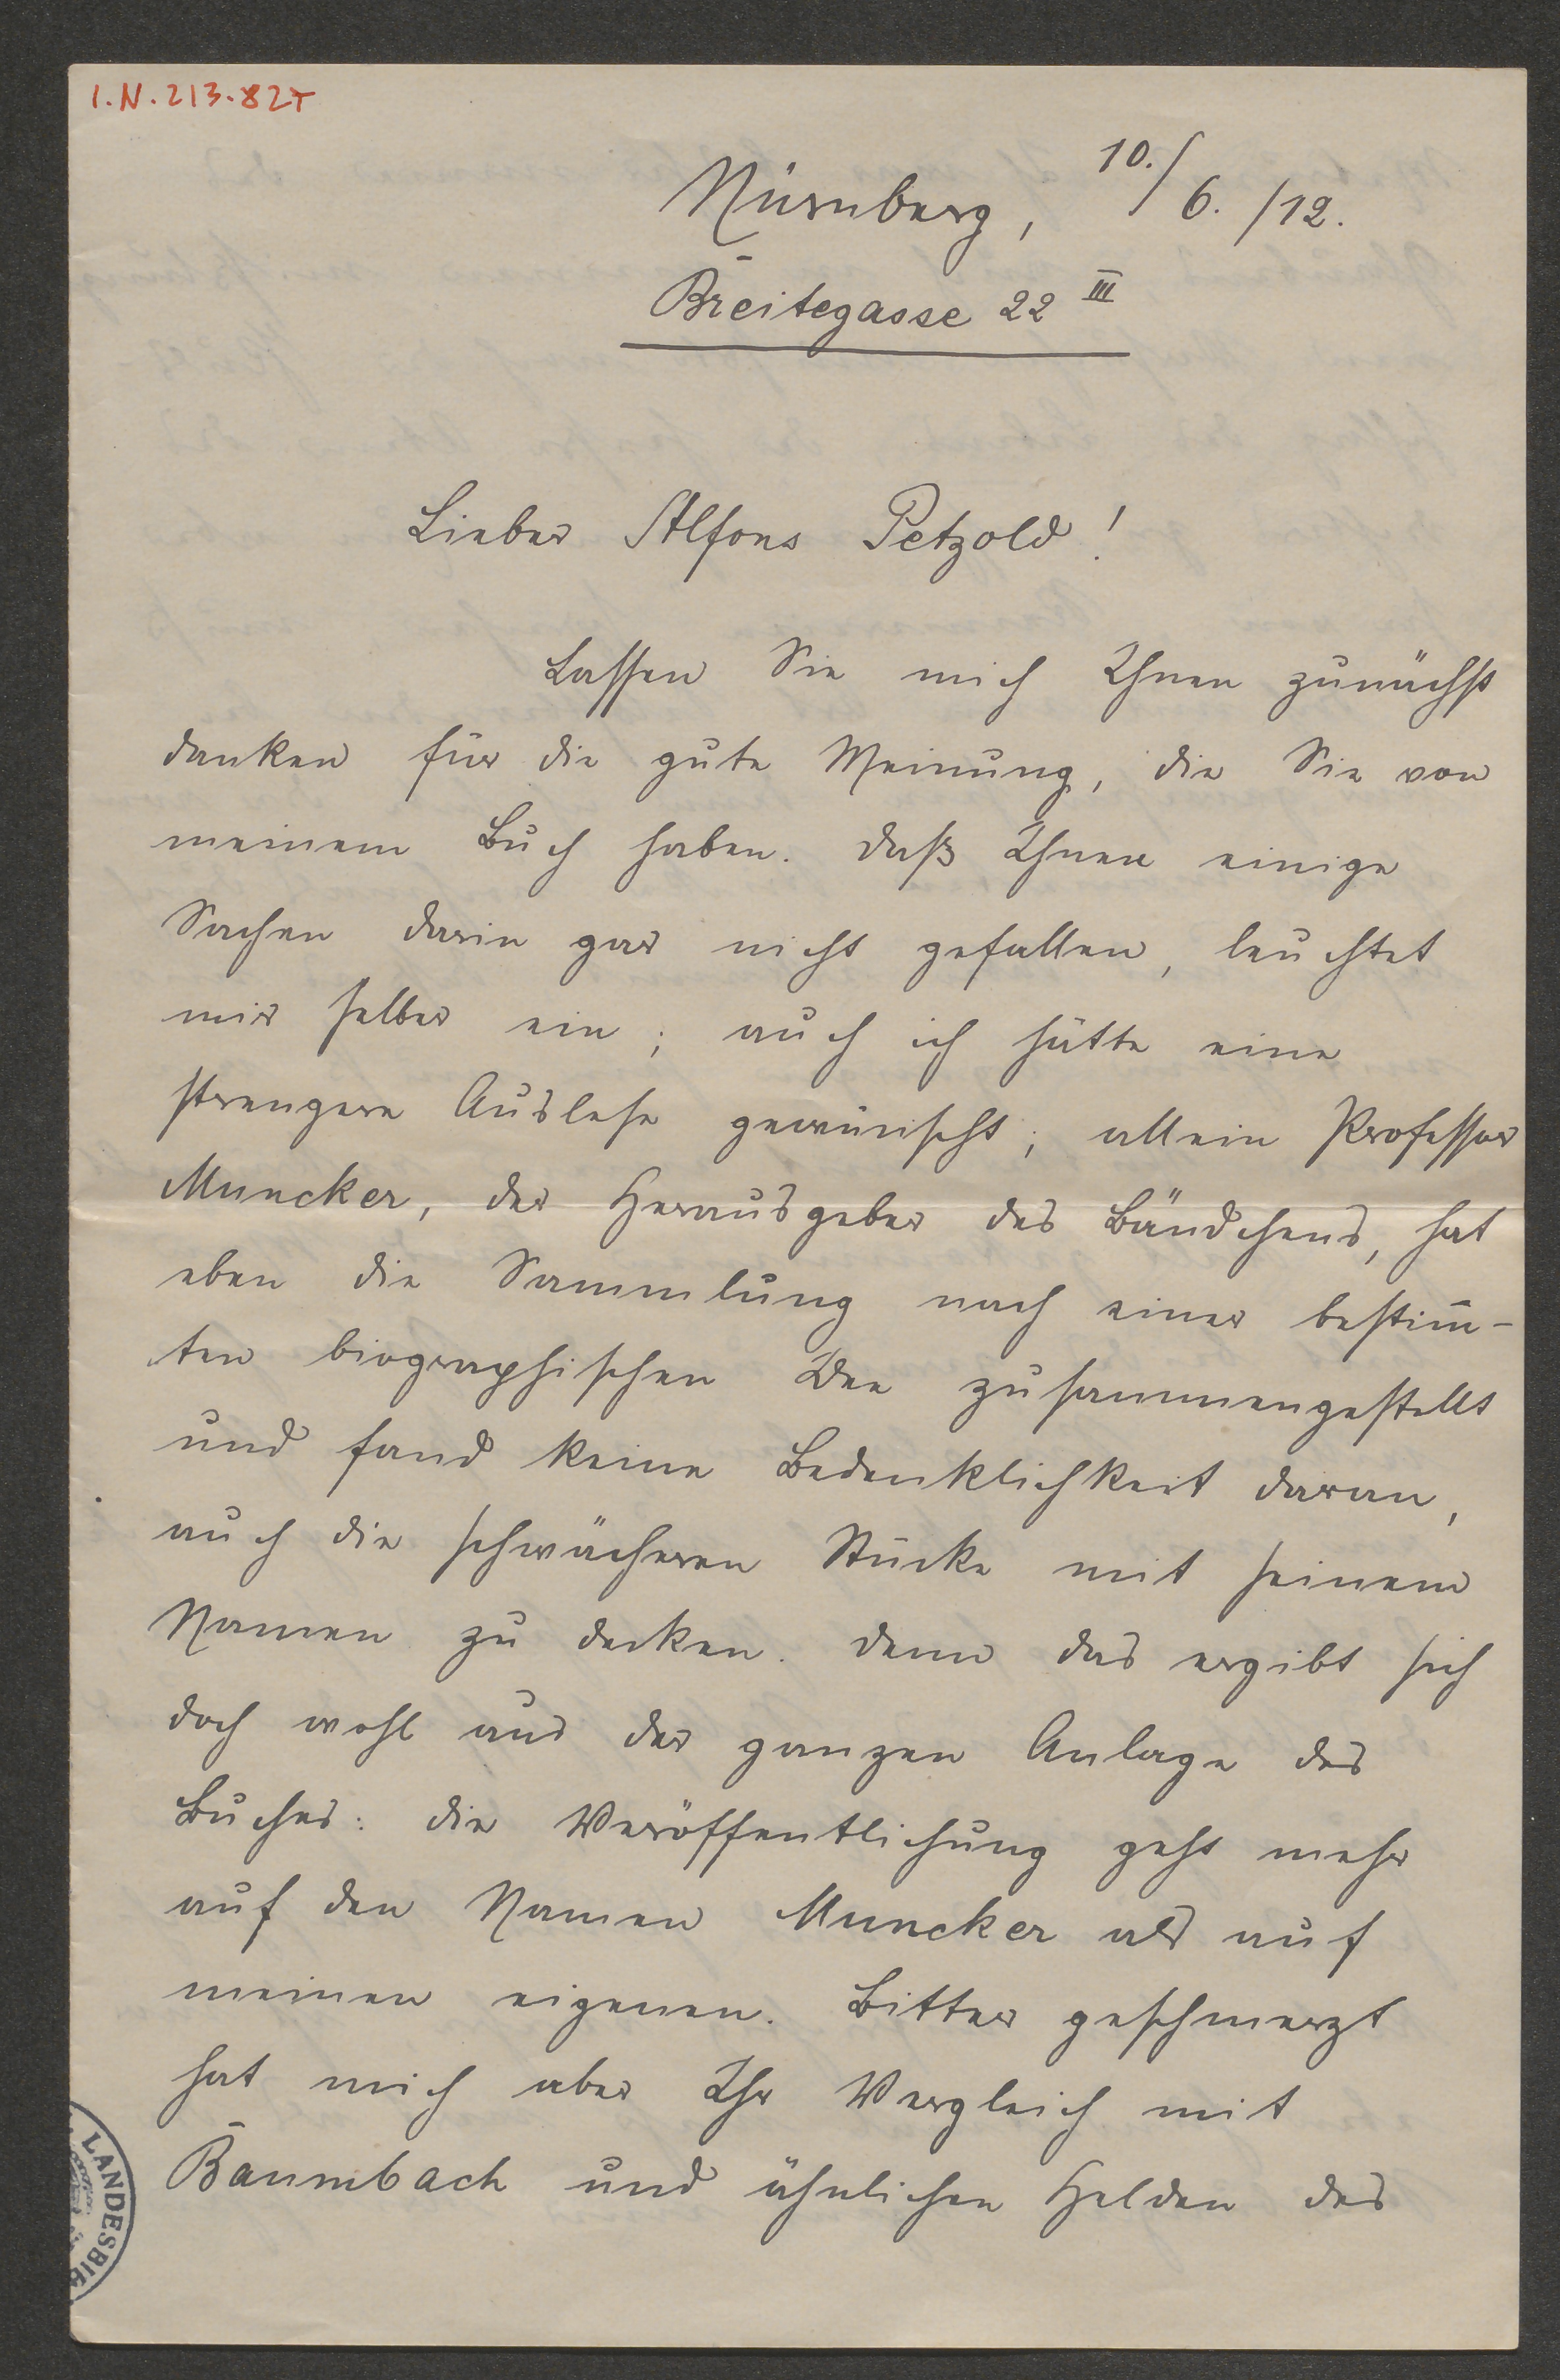 I.N. 213.827
Nürnberg, 10./6./12.
Breitegasse 22 III
Lieber Alfons Petzold!
Lassen Sie mich Ihnen zunächst
danken für die gute Meinung, die Sie von
meinem Buch haben. Daß Ihnen einige
Sachen darin gar nicht gefallen, leuchtet
mir selber ein; auch ich hätte eine
strengere Auslese gewünscht; allein Professor
Muncker, der Herausgeber des Bändchens, hat
eben die Sammlung nach einer bestim̅-
ten biographischen Idee zusammengestellt
und fand keine Bedenklichkeit daran,
auch die schwächeren Stücke mit seinem
Namen zu decken. Denn das ergibt sich
doch wohl aus der ganzen Anlage des
Buches: die Veröffentlichung geht mehr
auf den Namen Muncker als auf
meinen eigenen. Bitter geschmerzt
hat mich aber Ihr Vergleich mit
Baumbach und ähnlichen Helden des
LANDESBIB